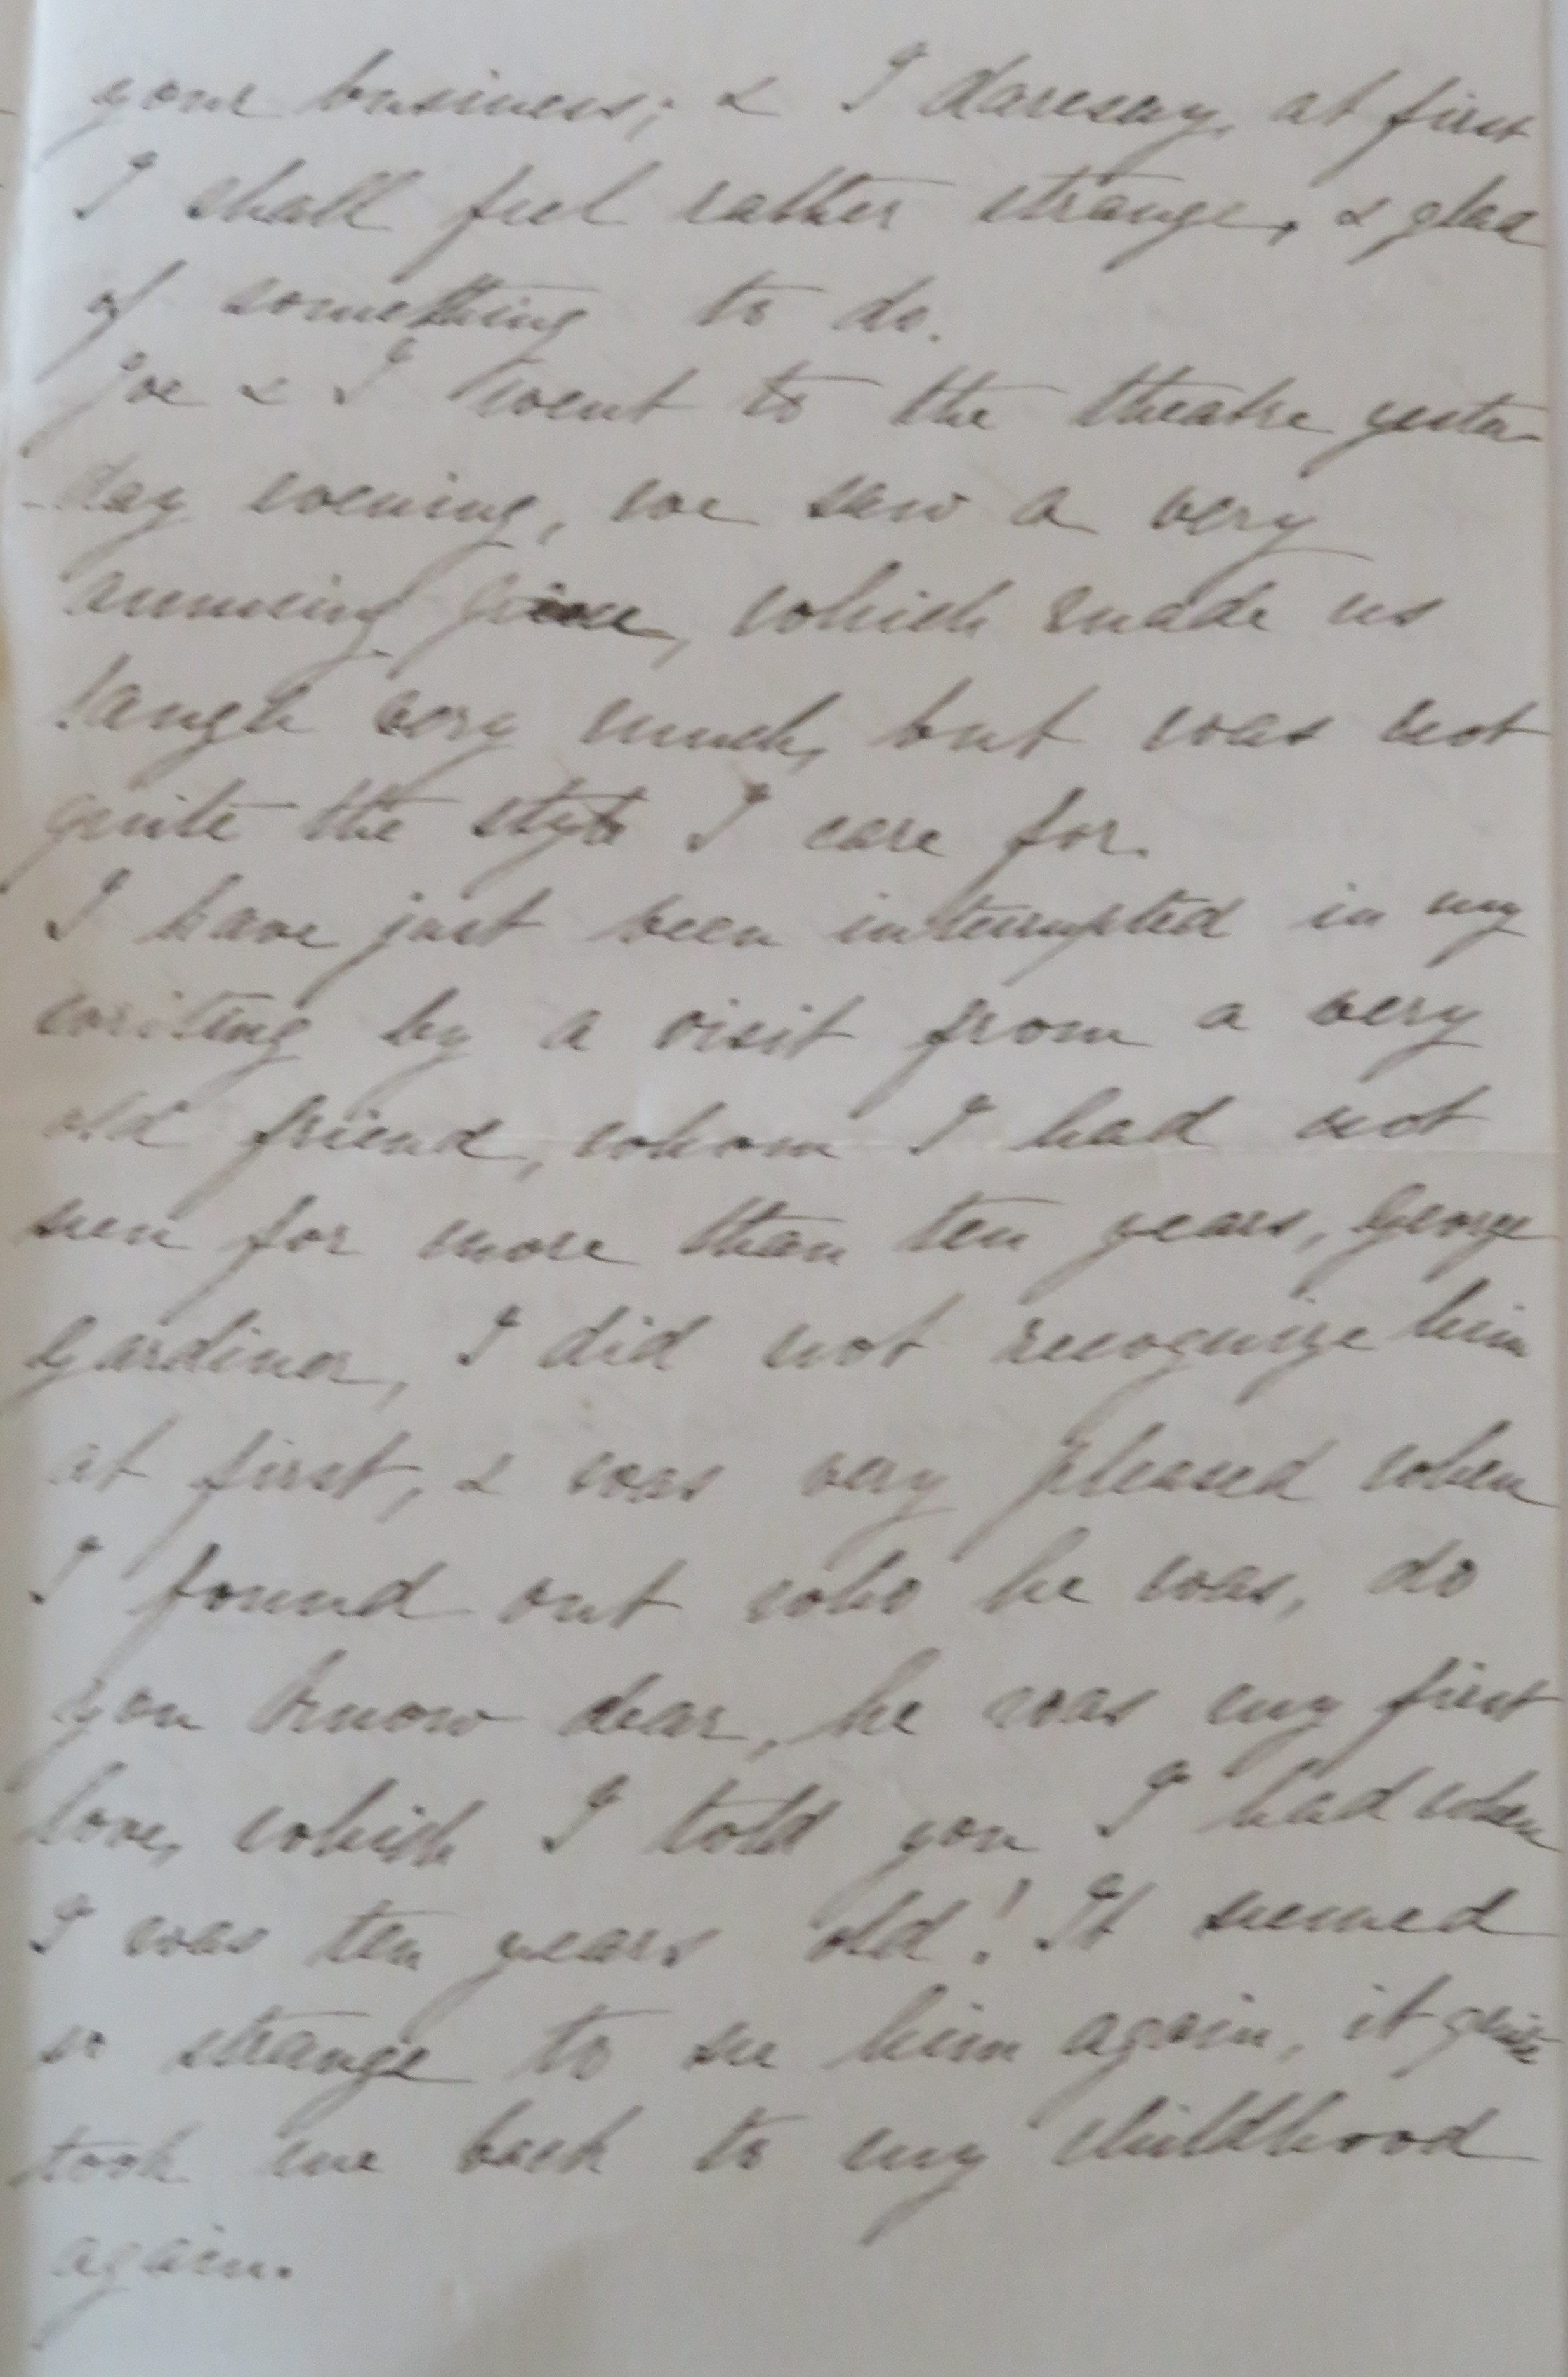 your business; & I daresay, at first
I shall feel rather strange, & glad
of something to do.
Joe & I went to the theatre yester-
-day evening, we saw a very
amusing piece, which made us
laugh very much, but was not
quite the style I care for.
I have just been interrupted in my
writing by a visit from a very
old friend, whom I had not
seen for more than ten years, George
Gardiner, I did not recognize him
at first, & was very pleased when
I found out who he was, do
you know dear, he was my first
love, which I told you I had when
I was ten years old! It seemed
so strange to see him again, it quite
took me back to my childhood
again.